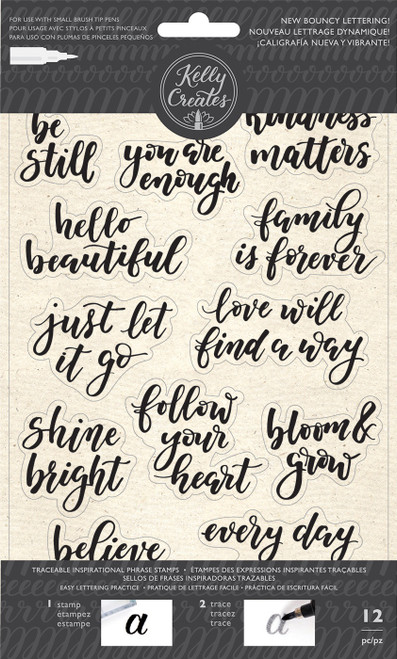 FOR USE WITH SMALL BRUSH TIP PENS
POUR USAGE AVEC STYLOS À PETITS PINCEAUX
PARA USO CON PLUMAS DE PINCELES PEQUEÑOS
NEW BOUNCY LETTERING!
NOUVEAU LETTRAGE DYNAMIQUE!
¡CALIGRAFÍA NUEVA Y VIBRANTE!
Kelly
Creates
be
still
you are
enough
kindness
matters
hello
beautiful
family
is forever
just let
it go
love will
find a way
shine
bright
follow
your
heart
bloom &
grow
believe
every day
TRACEABLE INSPIRATIONAL PHRASE STAMPS • ÉTAMPES DES EXPRESSIONS INSPIRANTES TRAÇABLES
SELLOS DE FRASES INSPIRADORAS TRAZABLES
EASY LETTERING PRACTICE • PRATIQUE DE LETTRAGE FACILE • PRÁCTICA DE ESCRITURA FACIL
1 stamp
étampez
estampe
a
2 trace
tracez
trace
a
12
pc/pz